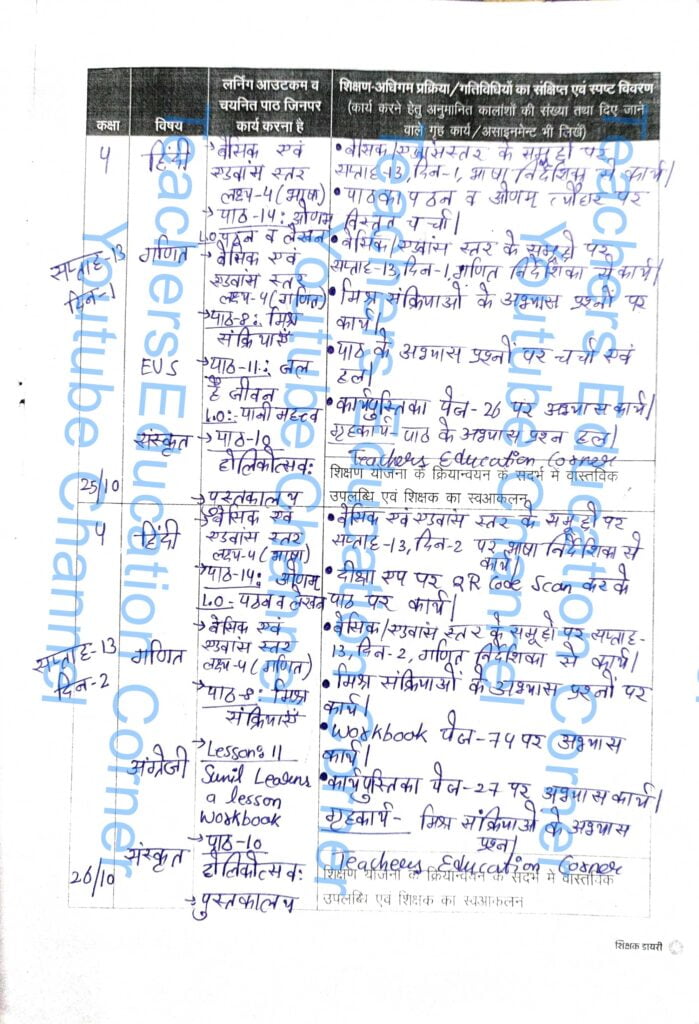 कक्षा
विषय
लर्निंग आउटकम व
चयनित पाठ जिनपर
कार्य करना है
शिक्षण-अधिगम प्रक्रिया/गतिविधियों का संक्षिप्त एवं स्पष्ट विवरण
(कार्य करने हेतु अनुमानित कालांशों की संख्या तथा दिए जाने
वाले गृह कार्य/असाइनमेन्ट भी लिखें)
सप्ताह-13
दिन-1
25/10
4
हिंदी
→बेसिक एवं
एडवांस स्तर
लक्ष्य-4 (भाषा)
→पाठ-14: ओणम
L.O पठन व लेखन
•बेसिक/एडवांसस्तर के समूहों पर
सप्ताह-13, दिन-1, भाषा निर्देशिका से कार्य|
•पाठ का पठन व ओणम त्यौहार पर
विस्तृत चर्चा|
गणित
→बेसिक एवं
एडवांस स्तर
लक्ष्य-4 (गणित)
→पाठ-8: मिश्र
संक्रियाएँ
•बेसिक/एडवांस स्तर के समूहों पर
सप्ताह-13, दिन-1, गणित निर्देशिका से कार्य|
•मिश्र संक्रियाओं के अभ्यास प्रश्नों पर
कार्य|
EVS
→पाठ-11: जल
है जीवन
L.O:- पानी महत्त्व
•पाठ के अभ्यास प्रश्नों पर चर्चा एवं
हल|
•कार्यपुस्तिका पेज-26 पर अभ्यास कार्य|
संस्कृत
→पाठ-10
होलिकोत्सवः
→पुस्तकालय
गृहकार्य- पाठ के अभ्यास प्रश्न हल|
Teachers Education Corner
शिक्षण योजना के क्रियान्वयन के संदर्भ में वास्तविक
उपलब्धि एवं शिक्षक का स्वआकलन
सप्ताह-13
दिन-2
26/10
4
हिंदी
→बेसिक एवं
एडवांस स्तर
लक्ष्य-4 (भाषा)
→पाठ-14: ओणम
L.O- पठन व लेखन
•बेसिक एवं एडवांस स्तर के समूहों पर
सप्ताह-13, दिन-2 पर भाषा निर्देशिका से
कार्य|
•दीक्षा एप पर QR Code Scan कर के
पाठ पर कार्य|
गणित
→बेसिक एवं
एडवांस स्तर
लक्ष्य-4 (गणित)
→पाठ-8: मिश्र
संक्रियाएँ
•बेसिक/एडवांस स्तर के समूहों पर सप्ताह-
13, दिन-2, गणित निर्देशिका से कार्य|
•मिश्र संक्रियाओं के अभ्यास प्रश्नों पर
कार्य|
अंग्रेजी
→Lesson: 11
Sunil Learns
a lesson
Workbook
•Workbook पेज-74 पर अभ्यास
कार्य|
•कार्यपुस्तिका पेज-27 पर अभ्यास कार्य|
संस्कृत
→पाठ-10
होलिकोत्सवः
→पुस्तकालय
गृहकार्य- मिश्र संक्रियाओं के अभ्यास
प्रश्न|
Teachers Education Corner
शिक्षण योजना के क्रियान्वयन के संदर्भ में वास्तविक
उपलब्धि एवं शिक्षक का स्वआकलन
शिक्षक डायरी
Teachers Education Corner
Youtube Channel
Teachers Education Corner
Youtube Channel
Teachers Education Corner
Youtube Channel